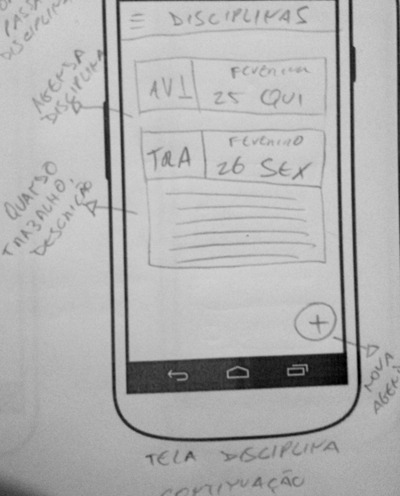 PASSA
DISCIPLINA
DISCIPLINAS
AGENDA
DISCIPLINA
AV1
FEVEREIRO
25 QUI
TRA
FEVEREIRO
26 SEX
QUANDO
TRABALHO,
DESCRIÇÃO
+
NOVA
TELA DISCIPLINA
CONTINUAÇÃO